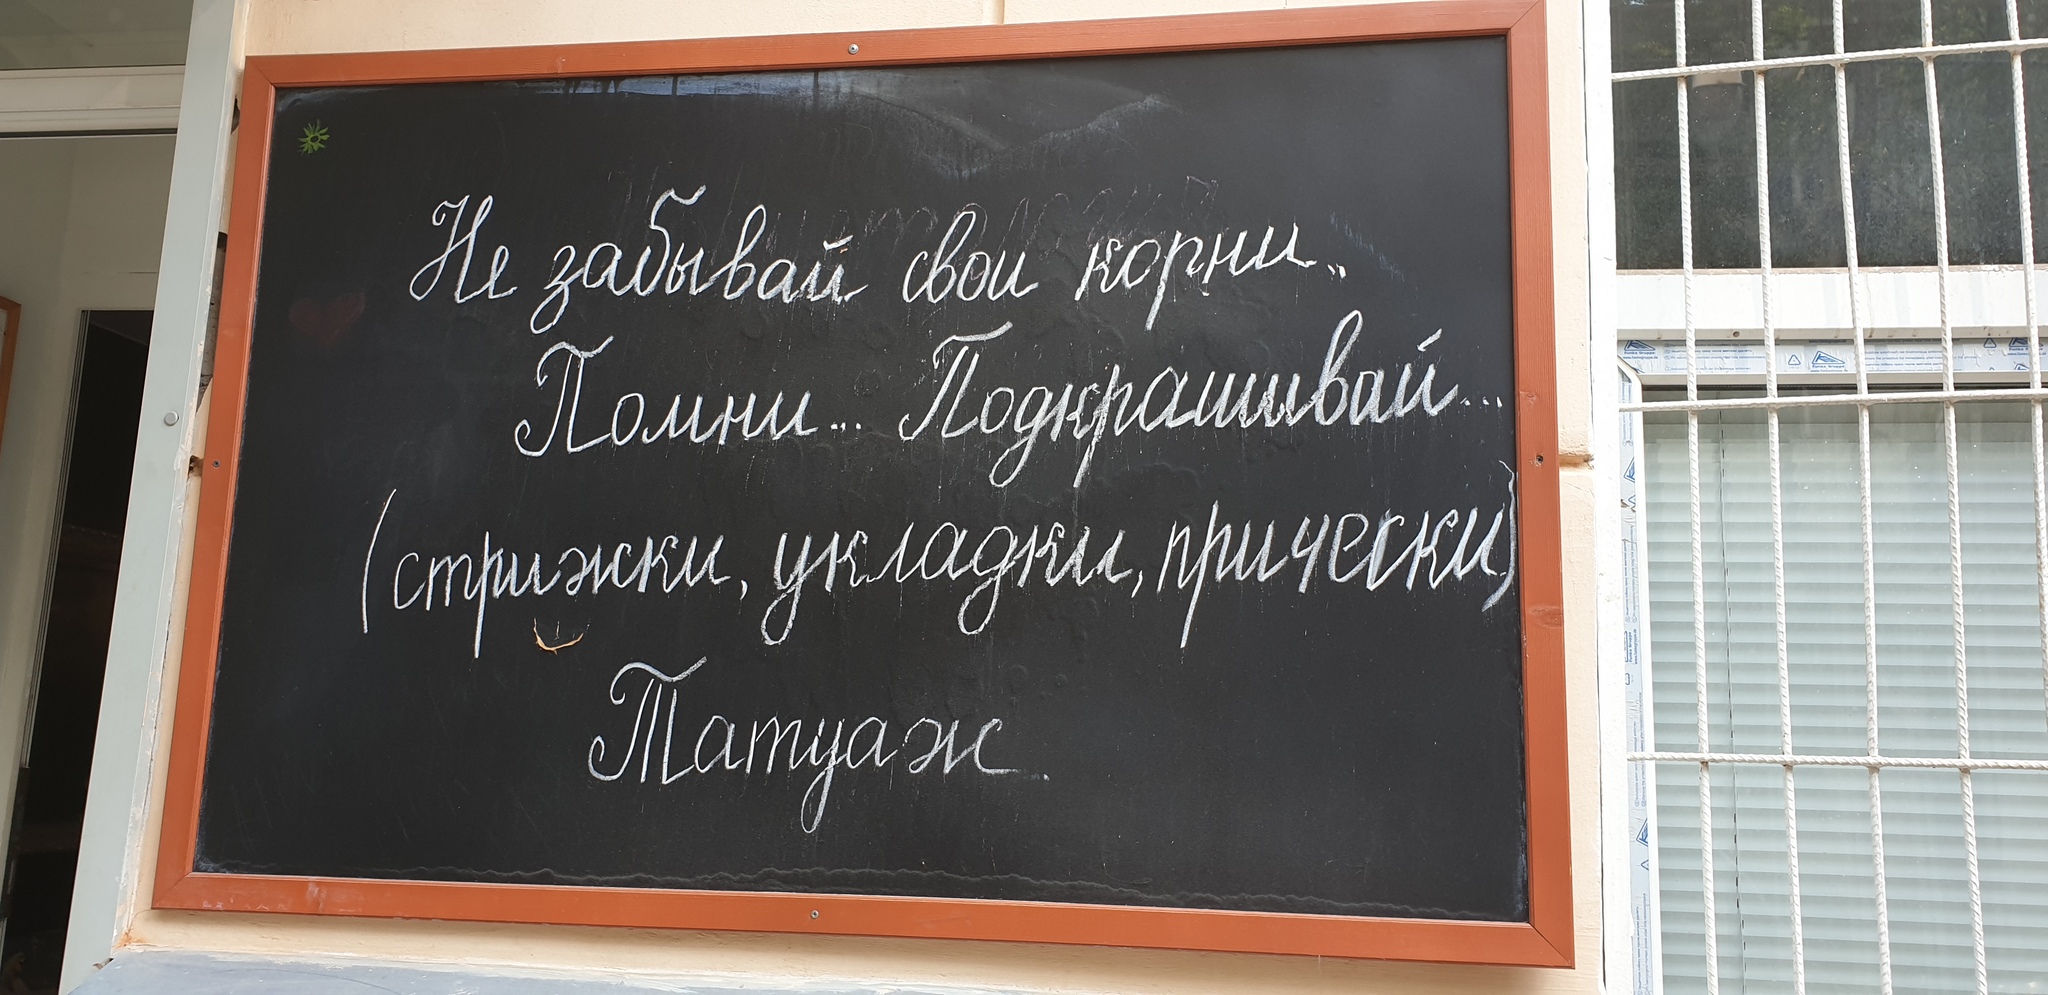 Не забывай свои корни..
Помни... Подкрашивай...
(стрижки, укладки, прически)
Татуаж.